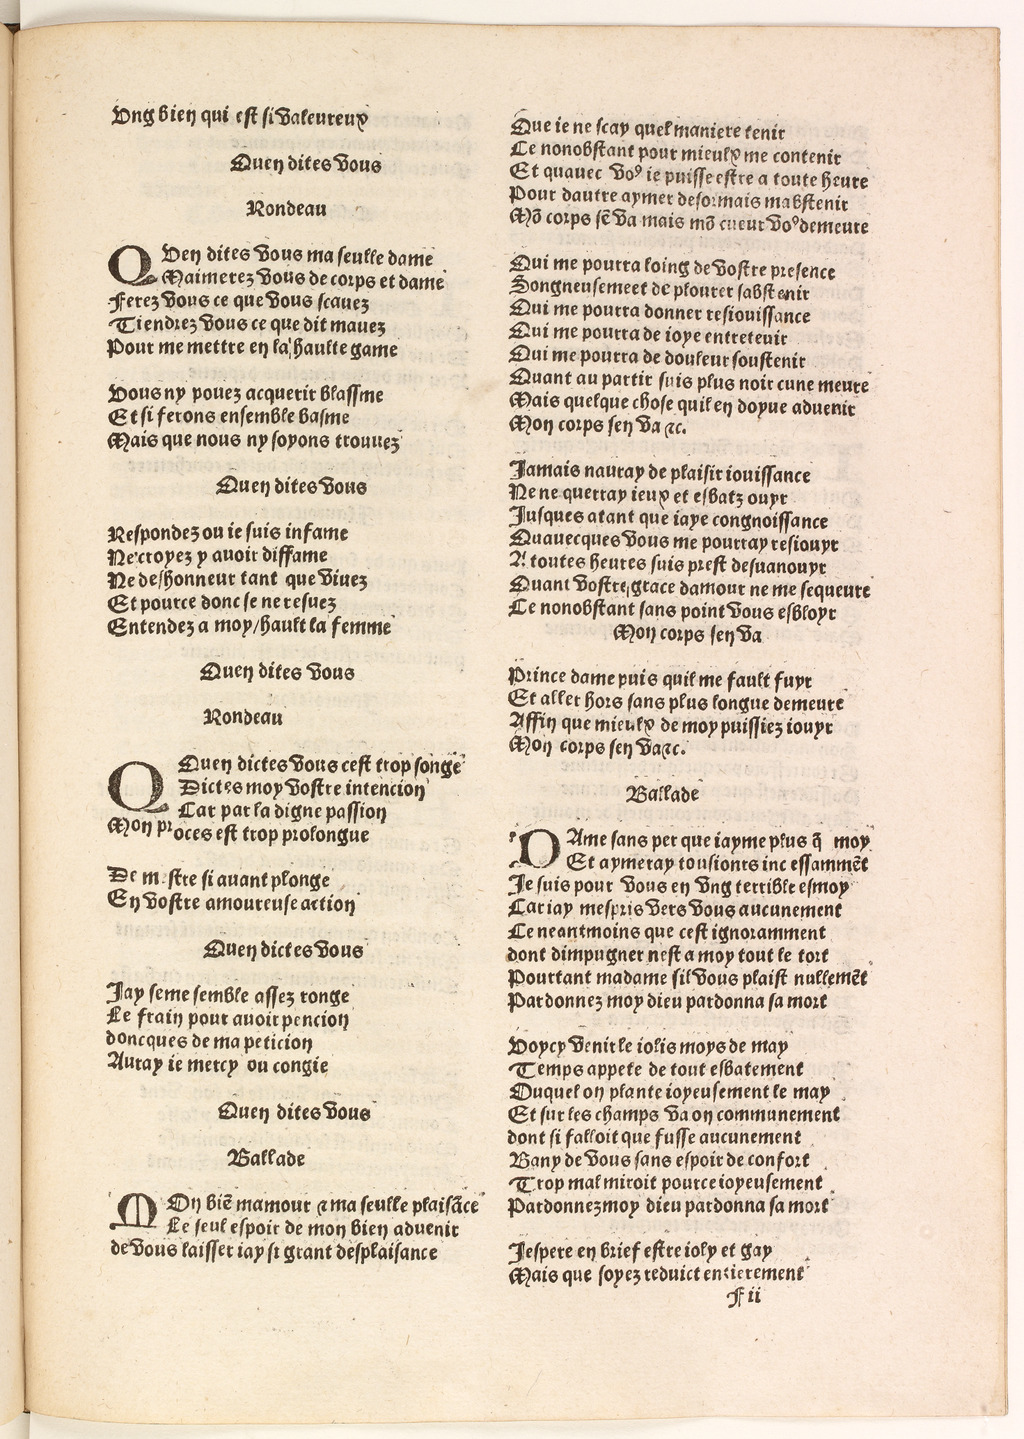 Vng bien qui est si valeureux
Quen dites vous
Rondeau
QVen dites vous ma seulle dame
Maimerez vous de corps et dame
Ferez vous ce que vous scauez
Tiendrez vous ce que dit mauez
Pour me mettre en la haulte game
Vous ny pouez acquerir blasme
Et si ferons ensemble basme
Mais que nous ny soyons trouuez
Quen dites vous
Respondez ou ie suis infame
Ne croyez y auoir diffame
Ne deshonneur tant que viuez
Et pource donc se ne resuez
Entendez a moy/hault la femme
Quen dites vous
Rondeau
QQuen dictes vous cest trop songe
Dictes moy vostre intencion
Car par la digne passion
Mon proces est trop prolongue
De m stre si auant plonge
En vostre amoureuse action
Quen dictes vous
Jay se me semble assez ronge
Le frain pour auoir pencion
doncques de ma peticion
Auray ie mercy ou congie
Quen dites vous
Ballade
MOn biẽ mamour ⁊ ma seulle plaisãce
Le seul espoir de mon bien aduenir
de vous laisser iay si grant desplaisance
Que ie ne scay quel maniere tenir
Ce nonobstant pour mieulx me contenir
Et quauec voꝰ ie puisse estre a toute heure
Pour dautre aymer desormais mabstenir
Mõ corps sẽ va mais mõ cueur voꝰ demeure
Qui me pourra loing de vostre presence
Songneusemeet de plourer sabstenir
Qui me pourra donner resiouissance
Qui me pourra de ioye entreteuir
Qui me pourra de douleur soustenir
Quant au partir suis plus noir cune meure
Mais quelque chose quil en doyue aduenir
Mon corps sen va ⁊c.
Jamais nauray de plaisir iouissance
Ne ne querray ieux et esbatz ouyr
Jusques atant que iaye congnoissance
Quauecques vous me pourray resiouyr
A toutes heures suis prest desuanouyr
Quant vostre grace damour ne me sequeure
Ce nonobstant sans point vous esbloyr
Mon corps sen va
Prince dame puis quil me fault fuyr
Et aller hors sans plus longue demeure
Affin que mieulx de moy puissiez iouyr
Mon corps sen va⁊c.
Ballade
DAme sans per que iayme plus q̃ moy
Et aymeray tousionrs incessammẽt
Je suis pour vous en vng terrible esmoy
Car iay mespris vers vous aucunement
Ce neantmoins que cest ignoramment
dont dimpugner nest a moy tout le tort
Pourtant madame sil vous plaist nullemẽt
Pardonnez moy dieu pardonna sa mort
Voycy venir le iolis moys de may
Temps appele de tout esbatement
Ouquel on plante ioyeusement le may
Et sur les champs va on communement
dont si falloit que fusse aucunement
Bany de vous sans espoir de confort
Trop mal miroit pource ioyeusement
Pardonnez moy dieu pardonna sa mort
Jespere en brief estre ioly et gay
Mais que soyez reduict entierement
F ii